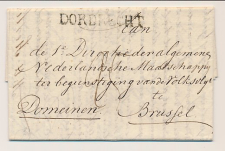 DORDRECHT
Aan
de Ie Directie der algemene
Nederlandsche Maatschappy
ter begunstiging van de Volksvlyt
te
Domeinen Brussel